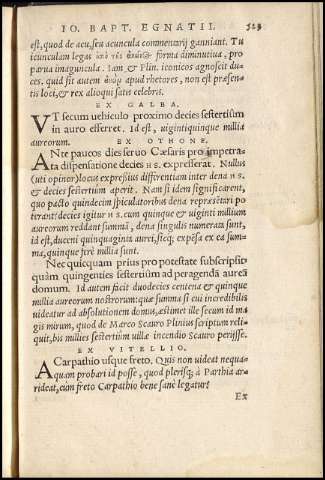 IO. BAPT. EGNATII. 523
est, quod de acu, seu acuncula commentarij ganniant. Tu
icunculam legas forma diminutiua, pro
parua imaguncula. Iam & Plin. iconicos agnoscit du-
ces. quid sit autem apud rhetores, non est præsen-
tis loci, & rex alioqui satis celebris.
EX GALBA.
VT secum uehiculo proximo decies sestertium
in auro efferret. Id est, uigintiquinque millia
aureorum.
EX OTHONE.
ANte paucos dies seruo Cæsaris pro impetra-
ta dispensatione decies H S. expresserat. Nullus
(uti opinor) locus expressius differentiam inter dena H S.
& decies sestertium aperit. Nam si idem significarent,
quo pacto quindecim speculatoribus dena repræsētari po
tirant? decies igitur H S. cum quinque & uiginti millium
aureorum reddant summā, dena singulis numerata sunt,
id est, ducenti quinquaginta aurei, sicq; expēsa ex ea sum-
ma, quinque ferè millia sunt.
Nec quicquam prius pro potestate subscripsit
quàm quingenties sestertium ad peragendā aureā
domum. Id autem facit duodecies centena & quinque
millia aureorum nostrorum: quæ summa si cui incredibilis
uideatur ad absolutionem domus, æstimet ille secum id ma
gis mirum, quod de Marco Scauro Plinius scriptum reli-
quit, bis millies sestertium uillæ incendio Scauro perijsse.
EX VITELLIO.
A Carpathio usque freto. Quis non uideat nequa-
quam probari id posse, quod plerisq; à Parthia ar
rideat, cum freto Carpathio bene sanè legatur?
Ex